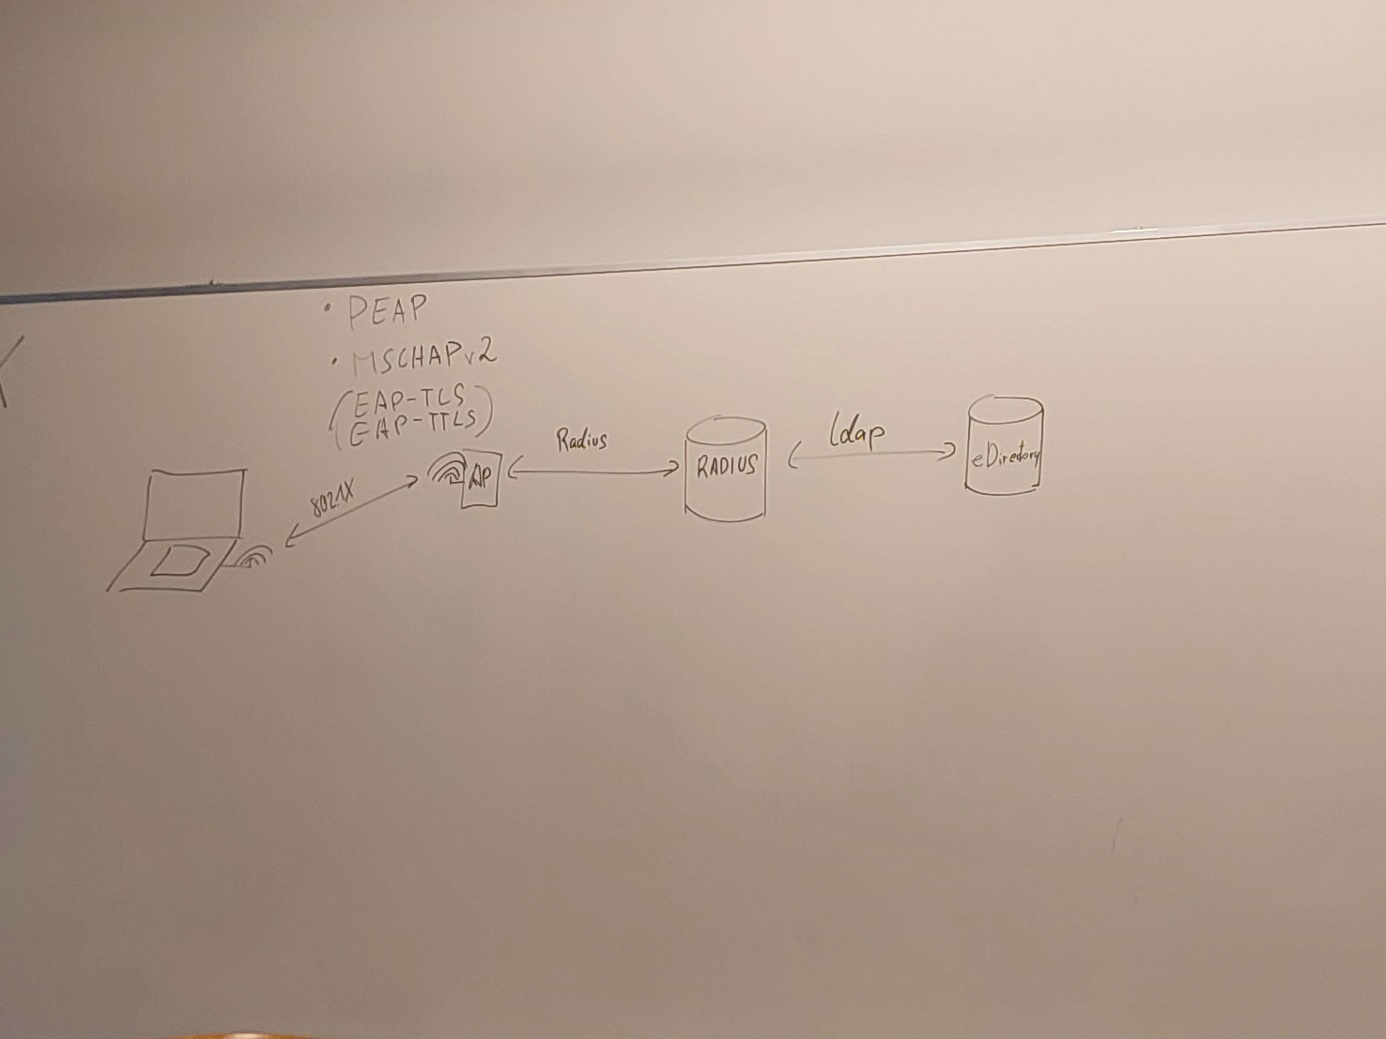 • PEAP
• MSCHAPv2
(EAP-TLS
EAP-TTLS)
8021X
AP
Radius
RADIUS
ldap
eDirectory